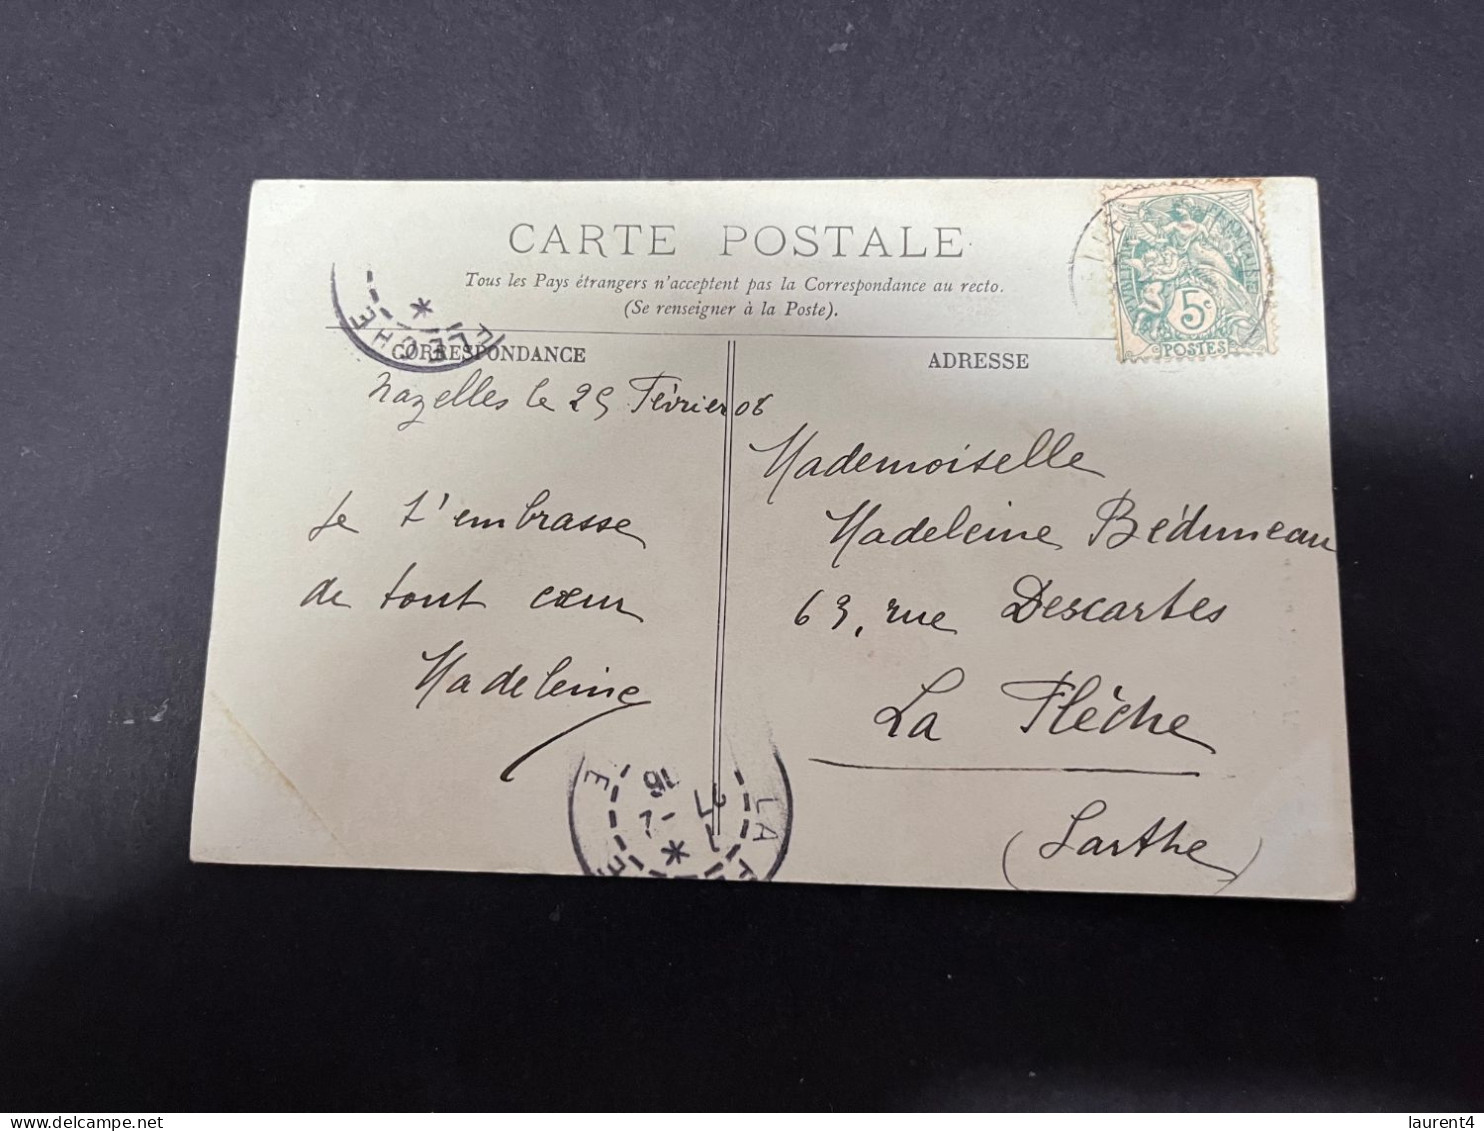 CARTE POSTALE
Tous les Pays étrangers n'acceptent pas la Correspondance au recto.
(Se renseigner à la Poste).
CORRESPONDANCE
ADRESSE
FLECHE
5c
POSTES
Nazelles le 25 Février 06
Je t'embrasse
de tout cœur
Madeleine
Mademoiselle
Madeleine Béduneau
63, rue Descartes
La Flèche
(Sarthe)
LA
delcampe.net
laurent4